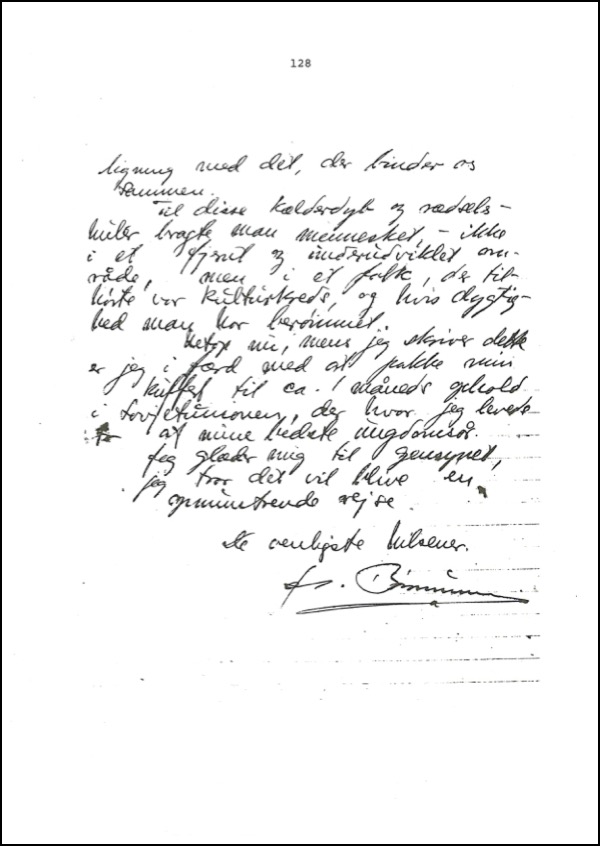 128
ligning med det, der binder os
sammen.
Til disse kælderdyb og rædsels-
huler bragte man mennesket, - ikke
i et fjernt og underudviklet om-
råde, men i et folk, der til-
hørte vor kulturkreds, og hvis dygtig-
hed man har berømmet.
Netop nu, mens jeg skriver dette
er jeg i færd med at pakke min
kuffert til ca. 1 måneds ophold
i Sovjetunionen, der hvor jeg levede
af mine bedste ungdomsår.
Jeg glæder mig til gensynet,
jeg tror det vil blive en
opmuntrende rejse.
De venligste hilsener.